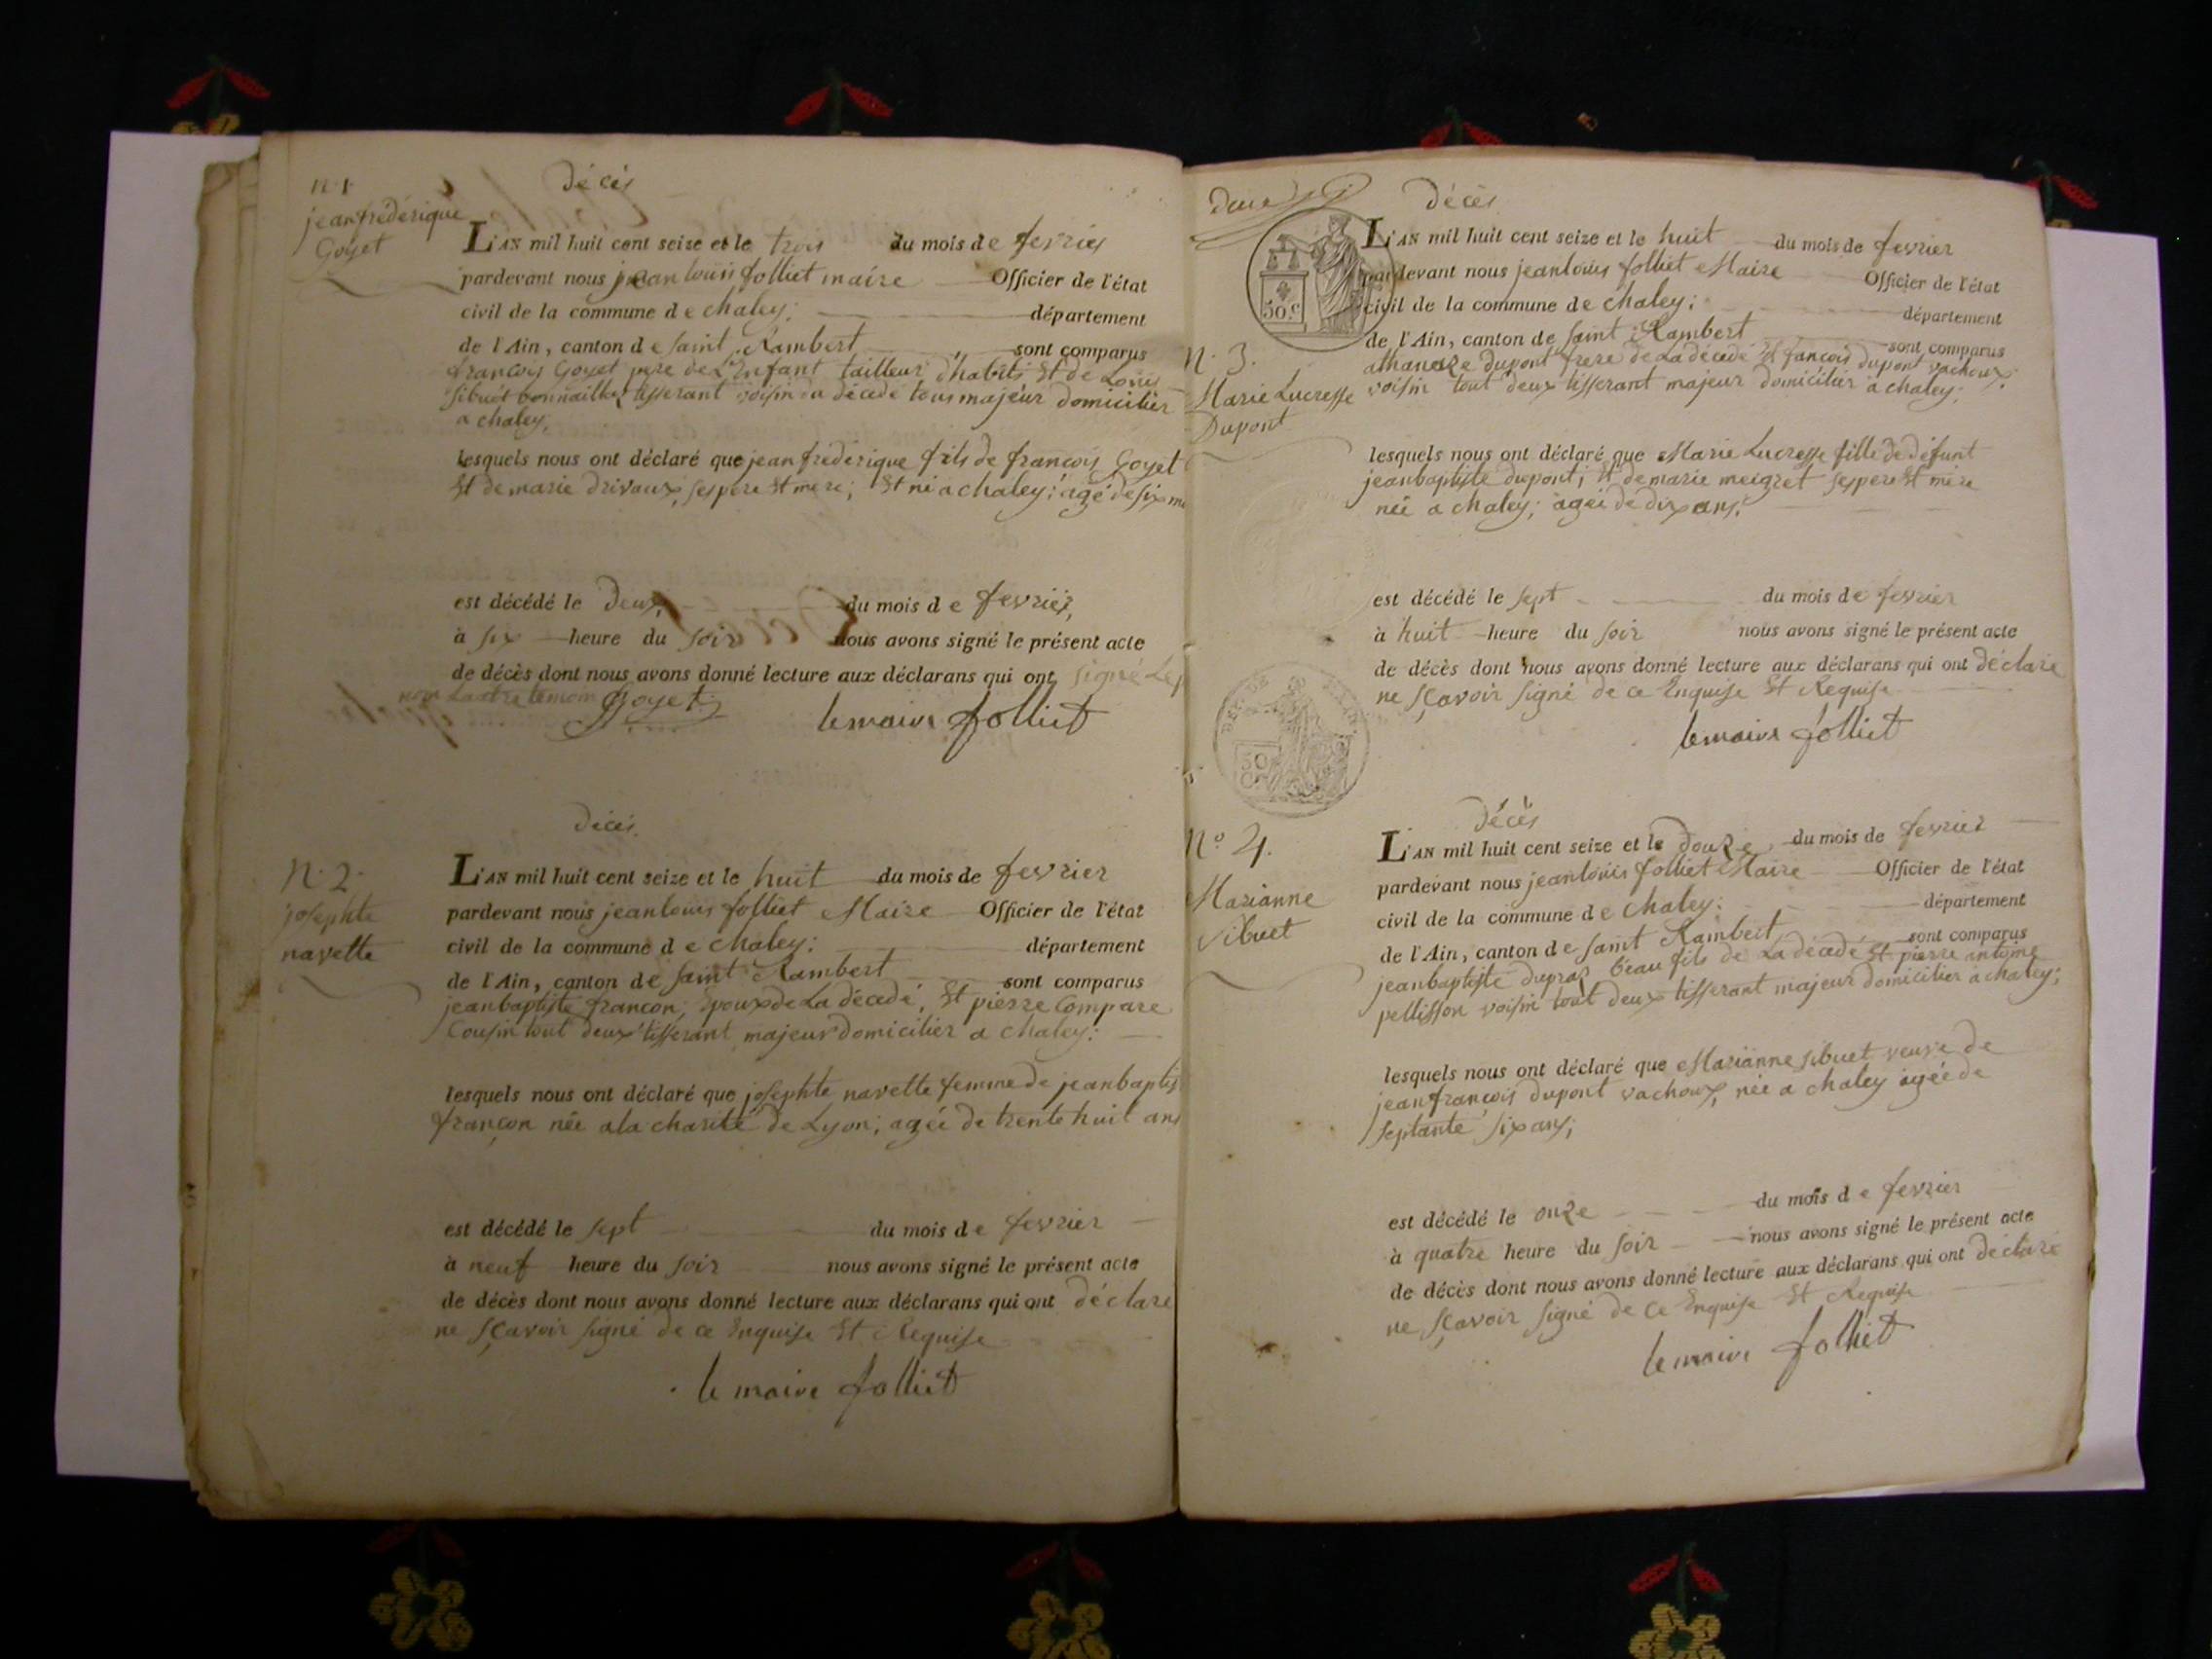 n. 1.
jean fréderique
Goyet
décés
L'AN mil huit cent seize et le trois du mois de fevrier
pardevant nous jean louis folliet maire Officier de l'état
civil de la commune de chaley; département
de l'Ain, canton de saint Rambert sont comparus
francois Goyet pere de L'Enfant tailleur d'habits Et de Louis
sibuet bonnailler tisserant voisin du décédé tous majeur domicilier
a chaley,
lesquels nous ont déclaré que jean fréderique fils de francois Goyet
Et de marie drivaux, ses pere Et mere; Est né a chaley; agé de six
est décédé le deux du mois de fevrier,
à six heure du soir nous avons signé le présent acte
de décès dont nous avons donné lecture aux déclarans qui ont signé
non Lautre temoin Goyet
lemaire folliet
décés
N. 2.
josephte
navette
L'AN mil huit cent seize et le huit du mois de fevrier
pardevant nous jean louis folliet Maire Officier de l'état
civil de la commune de chaley: département
de l'Ain, canton de saint Rambert sont comparus
jean baptiste francon, Epoux de La décedé, Et pierre Compare
Cousin tout deux tisserant majeur domicilier a chaley:
lesquels nous ont déclaré que josephte navette femme de jean baptis
françon née a la charité de Lyon; agée de trente huit ans
est décédé le sept du mois de fevrier
à neuf heure du soir nous avons signé le présent acte
de décès dont nous avons donné lecture aux déclarans qui ont déclare
ne sçavoir signé de ce Enquise Et Requise
le maire folliet
50 c
décès
N. 3.
Marie Lucresse
Dupont
L'AN mil huit cent seize et le huit du mois de fevrier
pardevant nous jean louis folliet Maire Officier de l'état
civil de la commune de chaley; département
de l'Ain, canton de saint Rambert sont comparus
athanaze dupont frere de La décedé Et fancois dupont vachoux;
voisin tout deux tisserant majeur domicilier a chaley;
lesquels nous ont déclaré que Marie Lucresse fille de défunt
jean baptiste dupont; Et de marie meigret ses pere Et mere
née a chaley; agée de dix ans;
est décédé le sept du mois de fevrier
à huit heure du soir nous avons signé le présent acte
de décès dont nous avons donné lecture aux déclarans qui ont déclaré
ne sçavoir signé de ce Enquise Et Requise
lemaire folliet
50
décès
No 4.
Marianne
Sibuet
L'AN mil huit cent seize et le douze du mois de fevrier
pardevant nous jean louis folliet Maire Officier de l'état
civil de la commune de chaley: département
de l'Ain, canton de saint Rambert sont comparus
jean baptiste dupraz beau fils de La décedé Et pierre antoine
pellisson voisin tout deux tisserant majeur domicilier a chaley;
lesquels nous ont déclaré que Marianne sibuet veuve de
jean françois dupont vachoux, née a chaley agée de
septante six ans;
est décédé le onze du mois de fevrier
à quatre heure du soir nous avons signé le présent acte
de décès dont nous avons donné lecture aux déclarans qui ont déclaré
ne sçavoir signé de ce Enquise Et Requise
le maire folliet